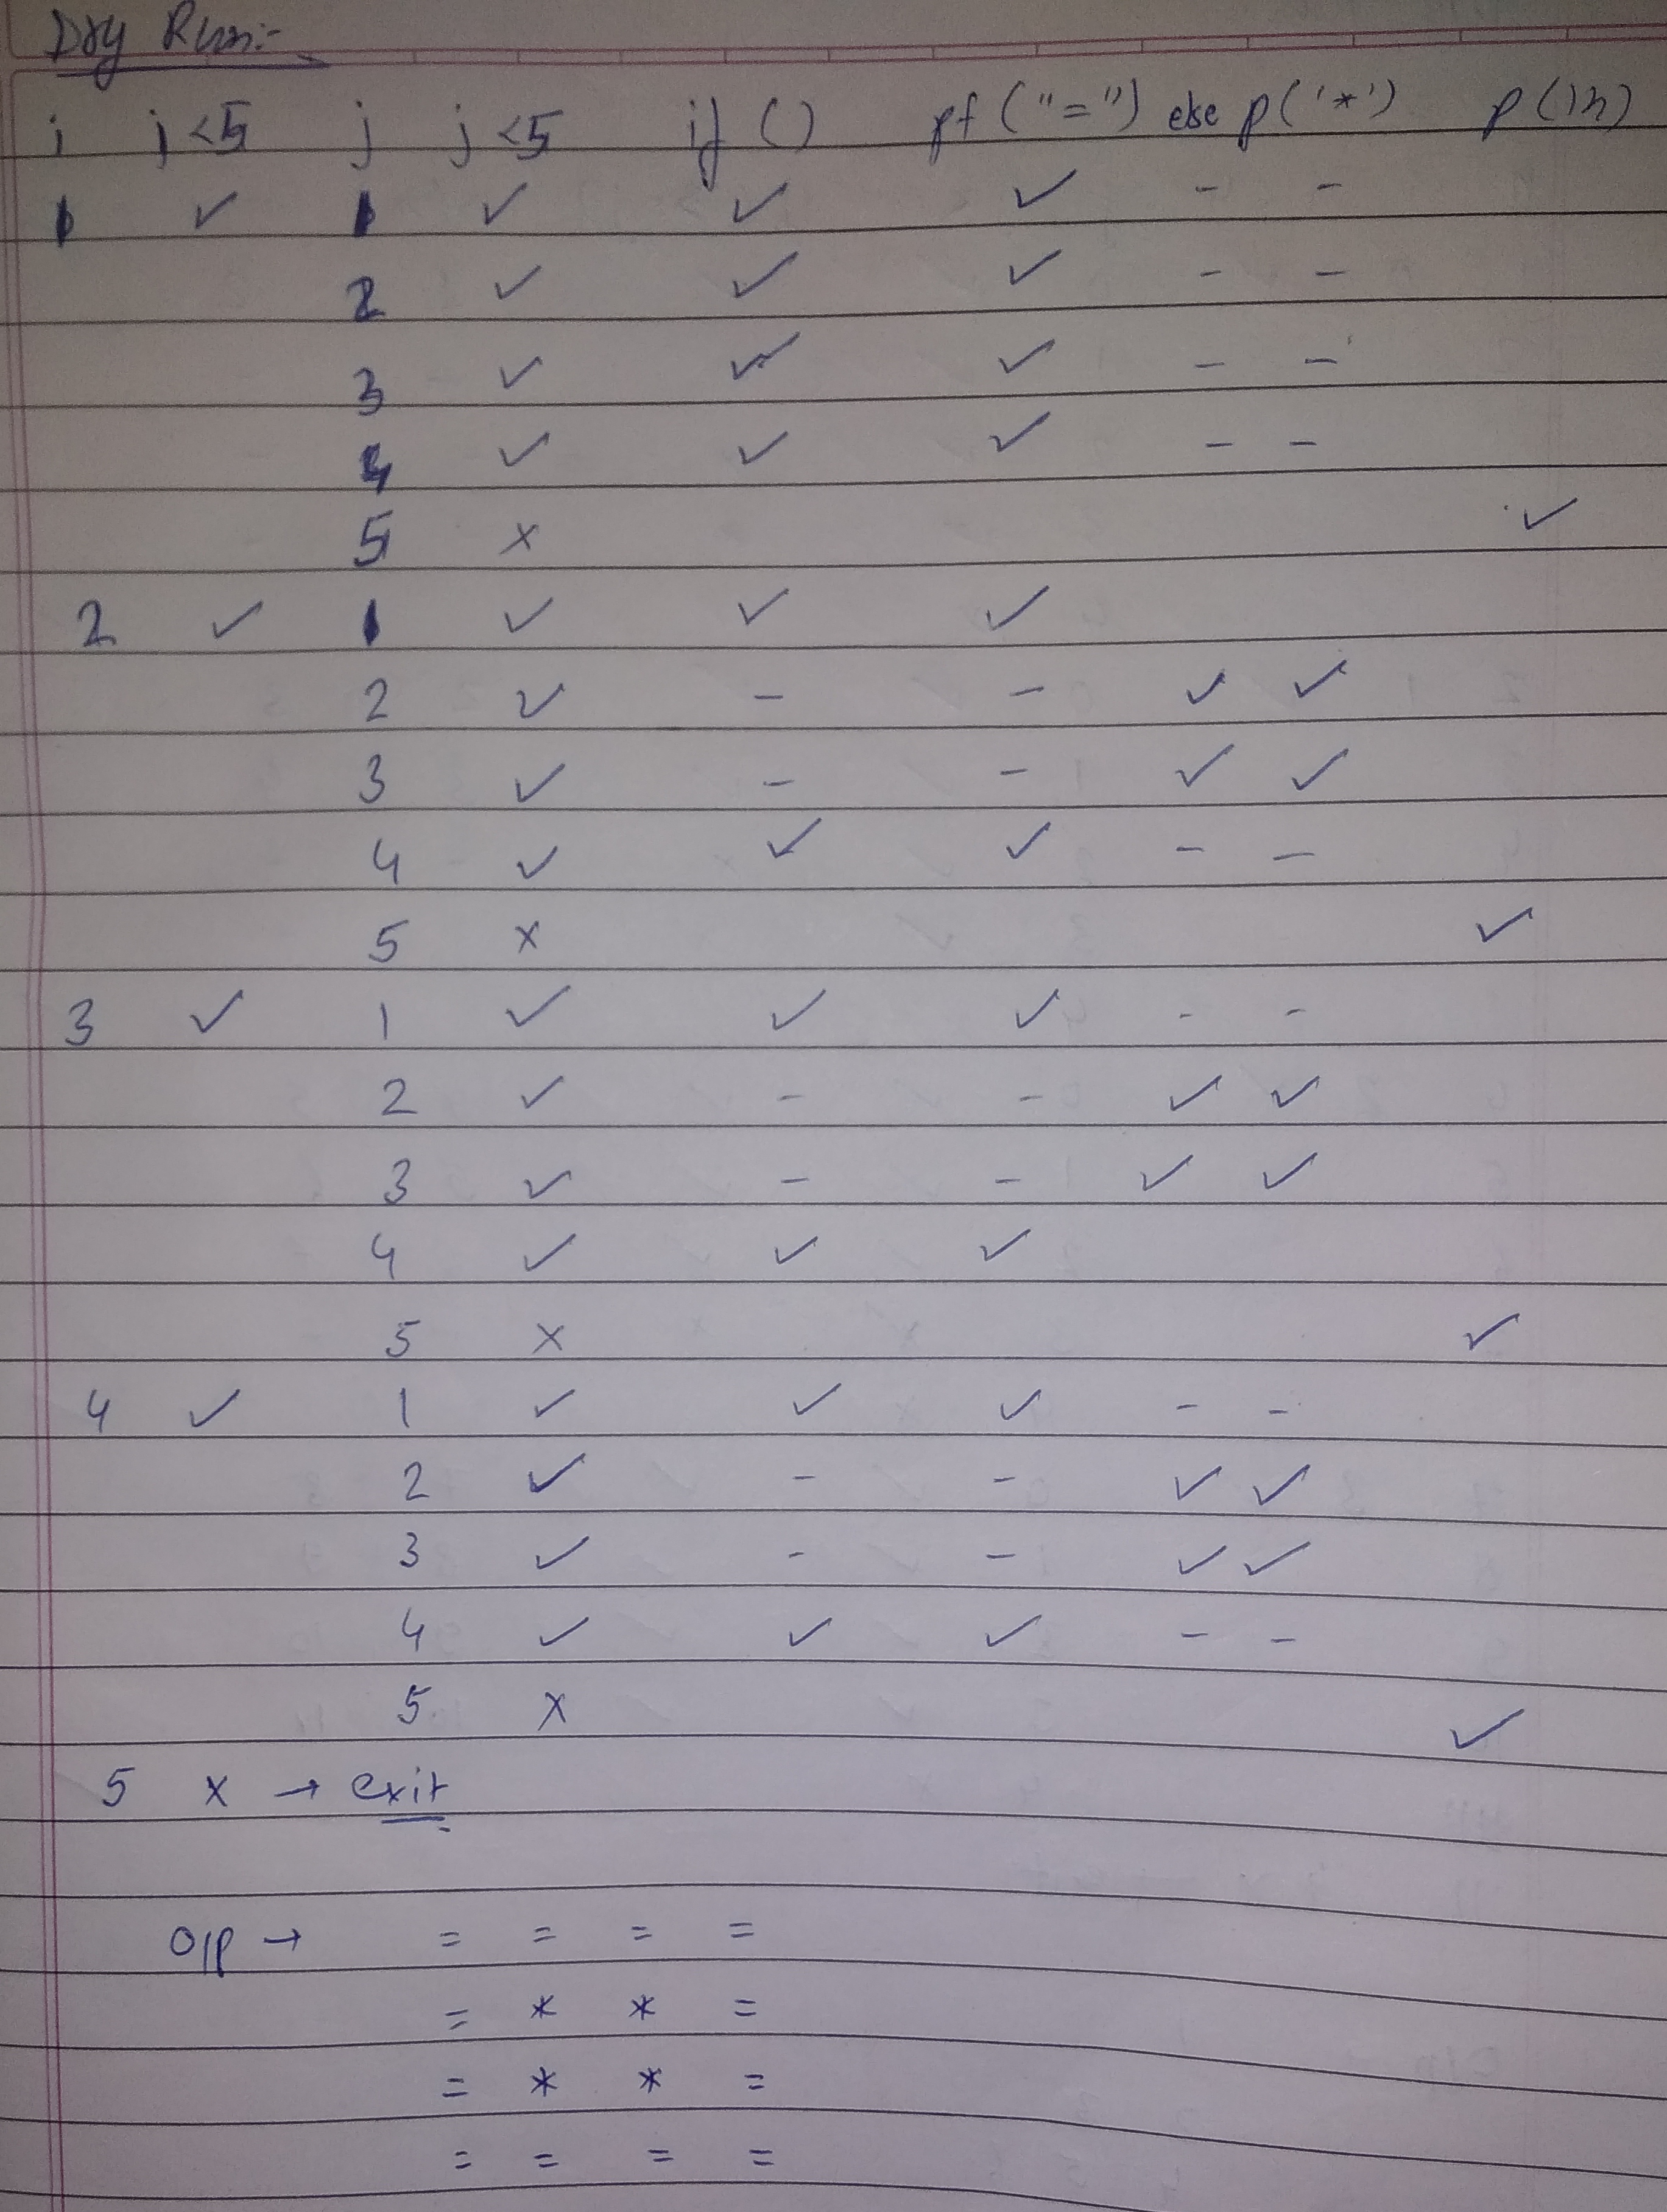 Dry Run:-
i j<5 j j<5 if () pf ("=") else p('*') p(\n)
1 ✓ 1 ✓ ✓ ✓ - -
2 ✓ ✓ ✓ - -
3 ✓ ✓ ✓ - -
4 ✓ ✓ ✓ - -
5 x ✓
2 ✓ 1 ✓ ✓ ✓
2 ✓ - - ✓ ✓
3 ✓ - - ✓ ✓
4 ✓ ✓ ✓ - -
5 x ✓
3 ✓ 1 ✓ ✓ ✓ - -
2 ✓ - - ✓ ✓
3 ✓ - - ✓ ✓
4 ✓ ✓ ✓
5 x ✓
4 ✓ 1 ✓ ✓ ✓ - -
2 ✓ - - ✓ ✓
3 ✓ - - ✓ ✓
4 ✓ ✓ ✓ - -
5 x ✓
5 x → exit
O/P → = = = =
= * * =
= * * =
= = = =